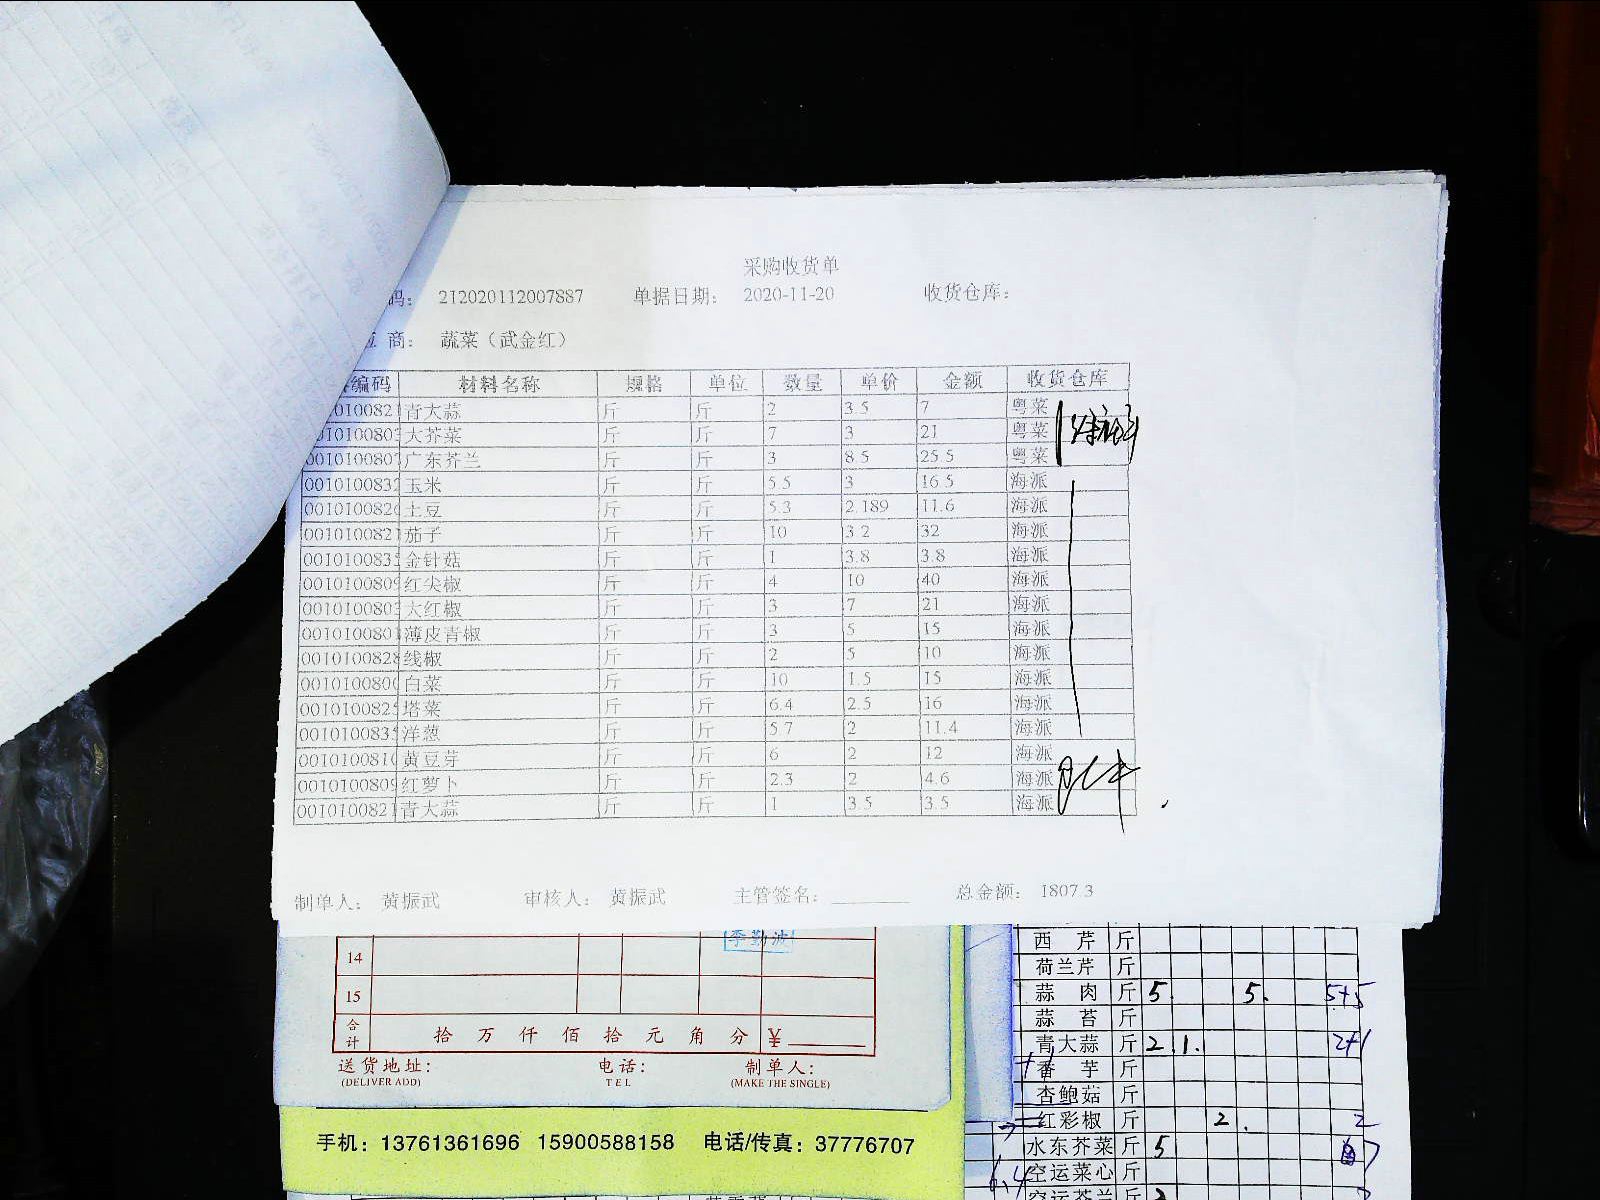 采购收货单
码： 212020112007887 单据日期： 2020-11-20 收货仓库：
应 商： 蔬菜（武金红）
编码 材料名称 规格 单位 数量 单价 金额 收货仓库
青大蒜 斤 斤 2 3.5 7 粤菜
大芥菜 斤 斤 7 3 21 粤菜
广东芥兰 斤 斤 3 8.5 25.5 粤菜
玉米 斤 斤 5.5 3 16.5 海派
土豆 斤 斤 5.3 2.189 11.6 海派
茄子 斤 斤 10 3.2 32 海派
金针菇 斤 斤 1 3.8 3.8 海派
红尖椒 斤 斤 4 10 40 海派
大红椒 斤 斤 3 7 21 海派
薄皮青椒 斤 斤 3 5 15 海派
线椒 斤 斤 2 5 10 海派
白菜 斤 斤 10 1.5 15 海派
塔菜 斤 斤 6.4 2.5 16 海派
洋葱 斤 斤 5.7 2 11.4 海派
黄豆芽 斤 斤 6 2 12 海派
红萝卜 斤 斤 2.3 2 4.6 海派
青大蒜 斤 斤 1 3.5 3.5 海派
制单人： 黄振武 审核人： 黄振武 主管签名： 总金额： 1807.3
李勤波
14
15
合计 拾 万 仟 佰 拾 元 角 分 ¥
送货地址： 电话： 制单人：
(DELIVER ADD) TEL (MAKE THE SINGLE)
手机：13761361696 15900588158 电话/传真：37776707
西芹 斤
荷兰芹 斤
蒜肉 斤 5. 5. 5+5
蒜苔 斤
青大蒜 斤 2 1. 2+1
香芋 斤
杏鲍菇 斤
红彩椒 斤 2. 2
水东芥菜 斤 5 7
6.4 空运菜心 斤
空运芥兰 斤